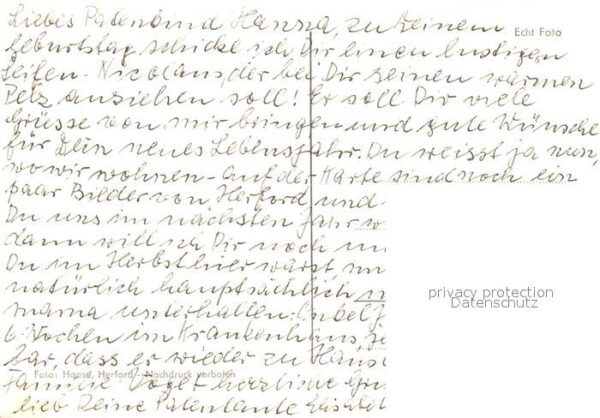 Liebes Patenkind Hanna, zu Deinem
Echt Foto
Geburtstag schicke ich Dir einen lustigen
Seifen-Nicolaus, der bei Dir seinen warmen
Pelz ausziehen soll! Er soll Dir viele
Grüsse von mir bringen und gute Wünsche
für Dein neues Lebensjahr. Du weisst ja nun,
wo wir wohnen - auf der Karte sind noch ein
paar Bilder von Herford, und
Du uns im nächsten Jahr w
dann will ich Dir noch m
Du im Herbst hier warst,
natürlich hauptsächlich
mama unterhalten. Onkel
6 Wochen im Krankenhaus,
bar, dass er wieder zu Haus
Foto: Haase, Herford - Nachdruck verboten
Familie Vogel herzliche
lieb Deine Patentante
privacy protection
Datenschutz